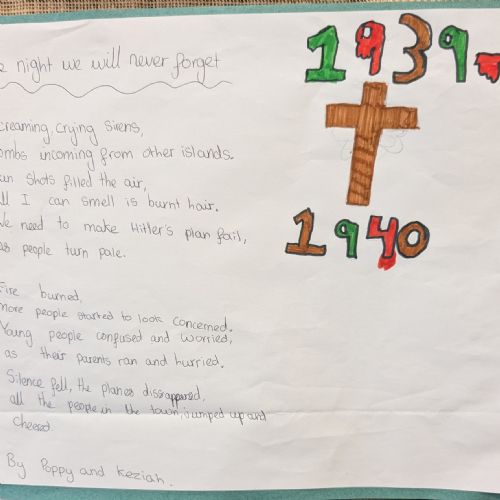 e night we will never forget
1939-
1940
creaming, crying sirens,
ombs incoming from other islands.
un shots filled the air,
ll I can smell is burnt hair.
We need to make Hitler's plan fail,
as people turn pale.
Fire burned,
more people started to look concerned.
Young people confused and worried,
as their parents ran and hurried.
Silence fell, the planes dissappeared,
all the people in the town jumped up and
cheered.
By Poppy and Keziah.